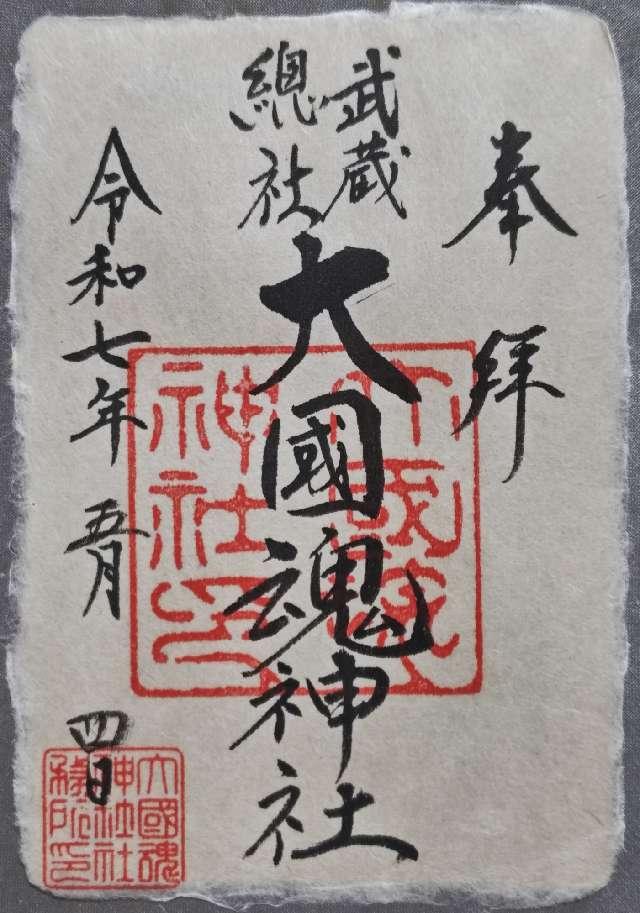 奉拝
武蔵
總社
大國魂神社
令和七年五月四日
神社印
大國魂
神社社
務所印